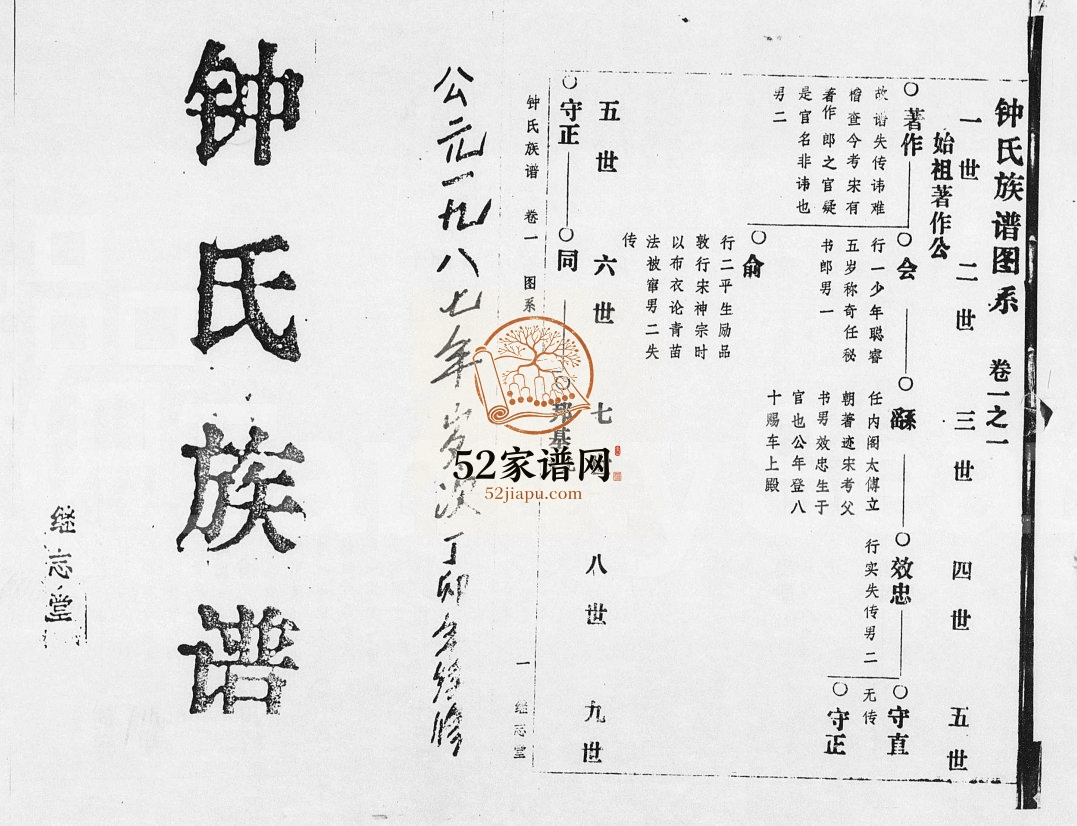 钟氏族谱图系 卷一之一
一世 二世 三世 四世 五世
始祖著作公
著作
故谱失传讳难
稽查今考宋有
著作郎之官疑
是官名非讳也
男二
会
行一少年聪睿
五岁称奇任秘
书郎男一
俞
行二平生励品
敦行宋神宗时
以布衣论青苗
法被窜男二失
传
任内阁太傅立
朝著迹宋考父
书男效忠生于
官也公年登八
十赐车上殿
效忠
行实失传男二
守直
无传
守正
五世 六世 七 八世 九世
守正
同
邦基
钟氏族谱 卷一 图系
一 继志堂
公元一九八七年岁次丁卯冬续修
钟氏族谱
继志堂
52家谱网
52jiapu.com